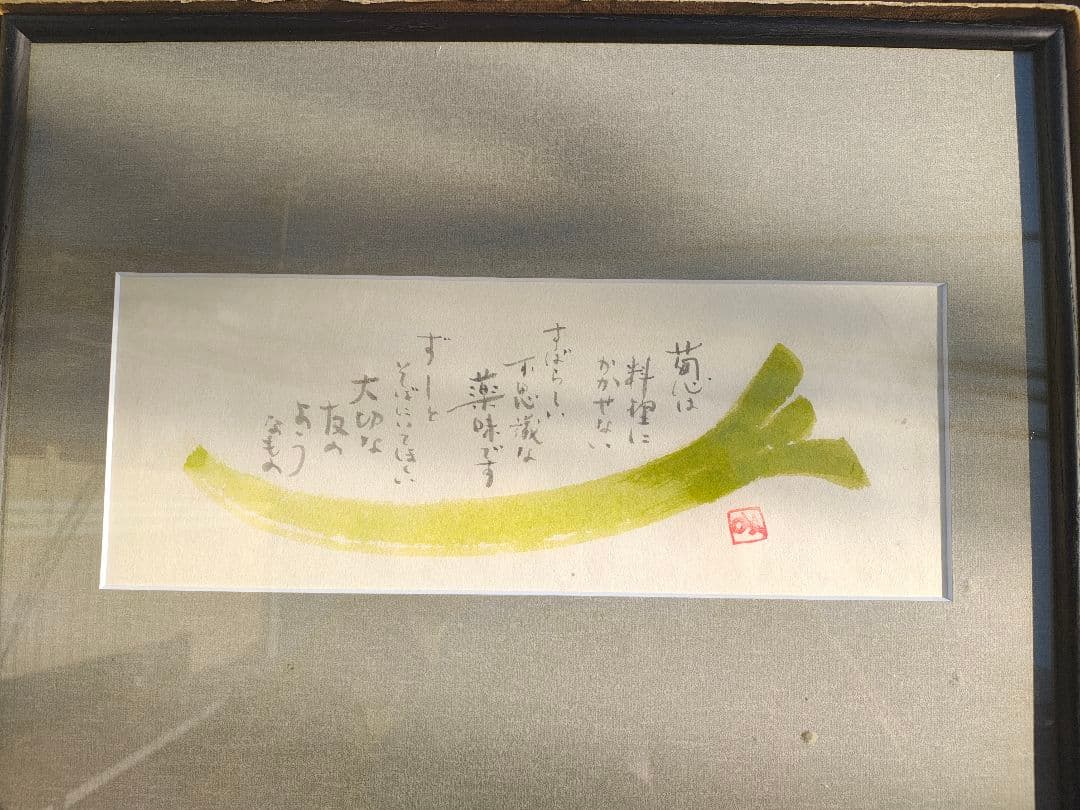 葱は
料理に
かかせない
すばらしい
不思議な
薬味です
ずーと
そばにいてほしい
大切な
友の
よう
なもの